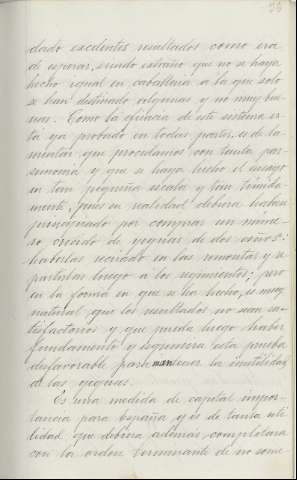 dado excelentes resultados como era
de esperar, siendo extraño que no se haya
hecho igual en caballeria a la que solo
se han destinado algunas y no muy bue-
nas. Como la eficacia de este sistema es-
tá ya probado en todas partes, es de la-
mentar que procedamos con tanta par-
simonia y que se haya hecho el ensayo
en tan pequeña escala y tan timida-
mente, pues en realidad debiera haberse
principiado por comprar un núme-
ro crecido de yeguas de dos años;
haberlas recriado en las remontas y re-
partirlas luego a los regimientos; pero
en la forma en que se ha hecho, es muy
natural que los resultados no sean sa-
tisfactorios y que pueda luego haber
fundamento y esgrimirse esta prueba
desfavorable para sostener la inutilidad
de las yeguas.
Es una medida de capital impor-
tancia para España y es de tanta uti-
lidad que debiera además completarse
con la orden terminante de no some-